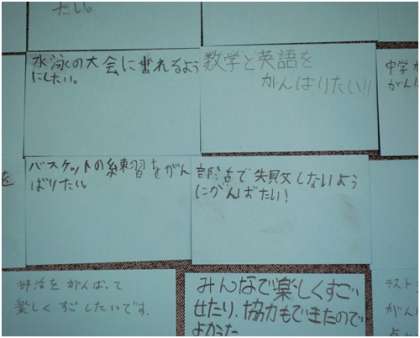 たい。
水泳の大会に出れるよう
にしたい。
数学と英語を
がんばりたい!!
中学
がん
を
バスケットの練習をがん
ばりたい。
部活で失敗しないよう
にがんばたい!
部活をがんばって
楽しくすごしたいです。
みんなで楽しくすご
せたり、協力もできたので
よかった
テスト
がん